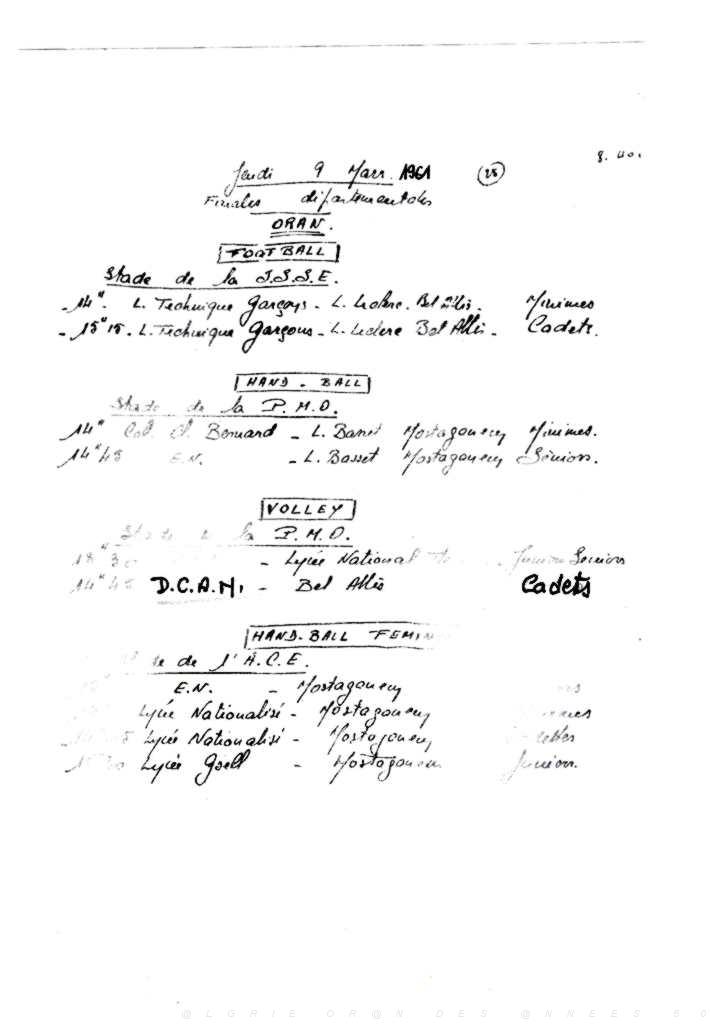 Jeudi 9 Mars 1961 (25)
Finales départementales
ORAN.
FOOTBALL
Stade de la J.S.S.E.
- 14H. L. Technique Garçons - L. Leclerc. Bel Abbès. Minimes
- 15H15. L. Technique Garçons - L. Leclerc Bel Abbès - Cadets.
HAND - BALL
Stade de la P.M.O.
14H Col. Bernard - L. Basset Mostaganem Minimes.
14H45 E.N. - L. Basset Mostaganem Séniors.
VOLLEY
Stade de la P.M.O.
- Lycée National - Juniors Séniors
14H45 D.C.A.M. - Bel Abbès Cadets
HAND-BALL FEMIN
de l'A.C.E.
E.N. - Mostaganem
Lycée Nationalisé - Mostaganem
Lycée Nationalisé - Mostaganem
Lycée Gsell - Mostaganem Juniors.
@LGRIE OR@N DES @NNEES 60